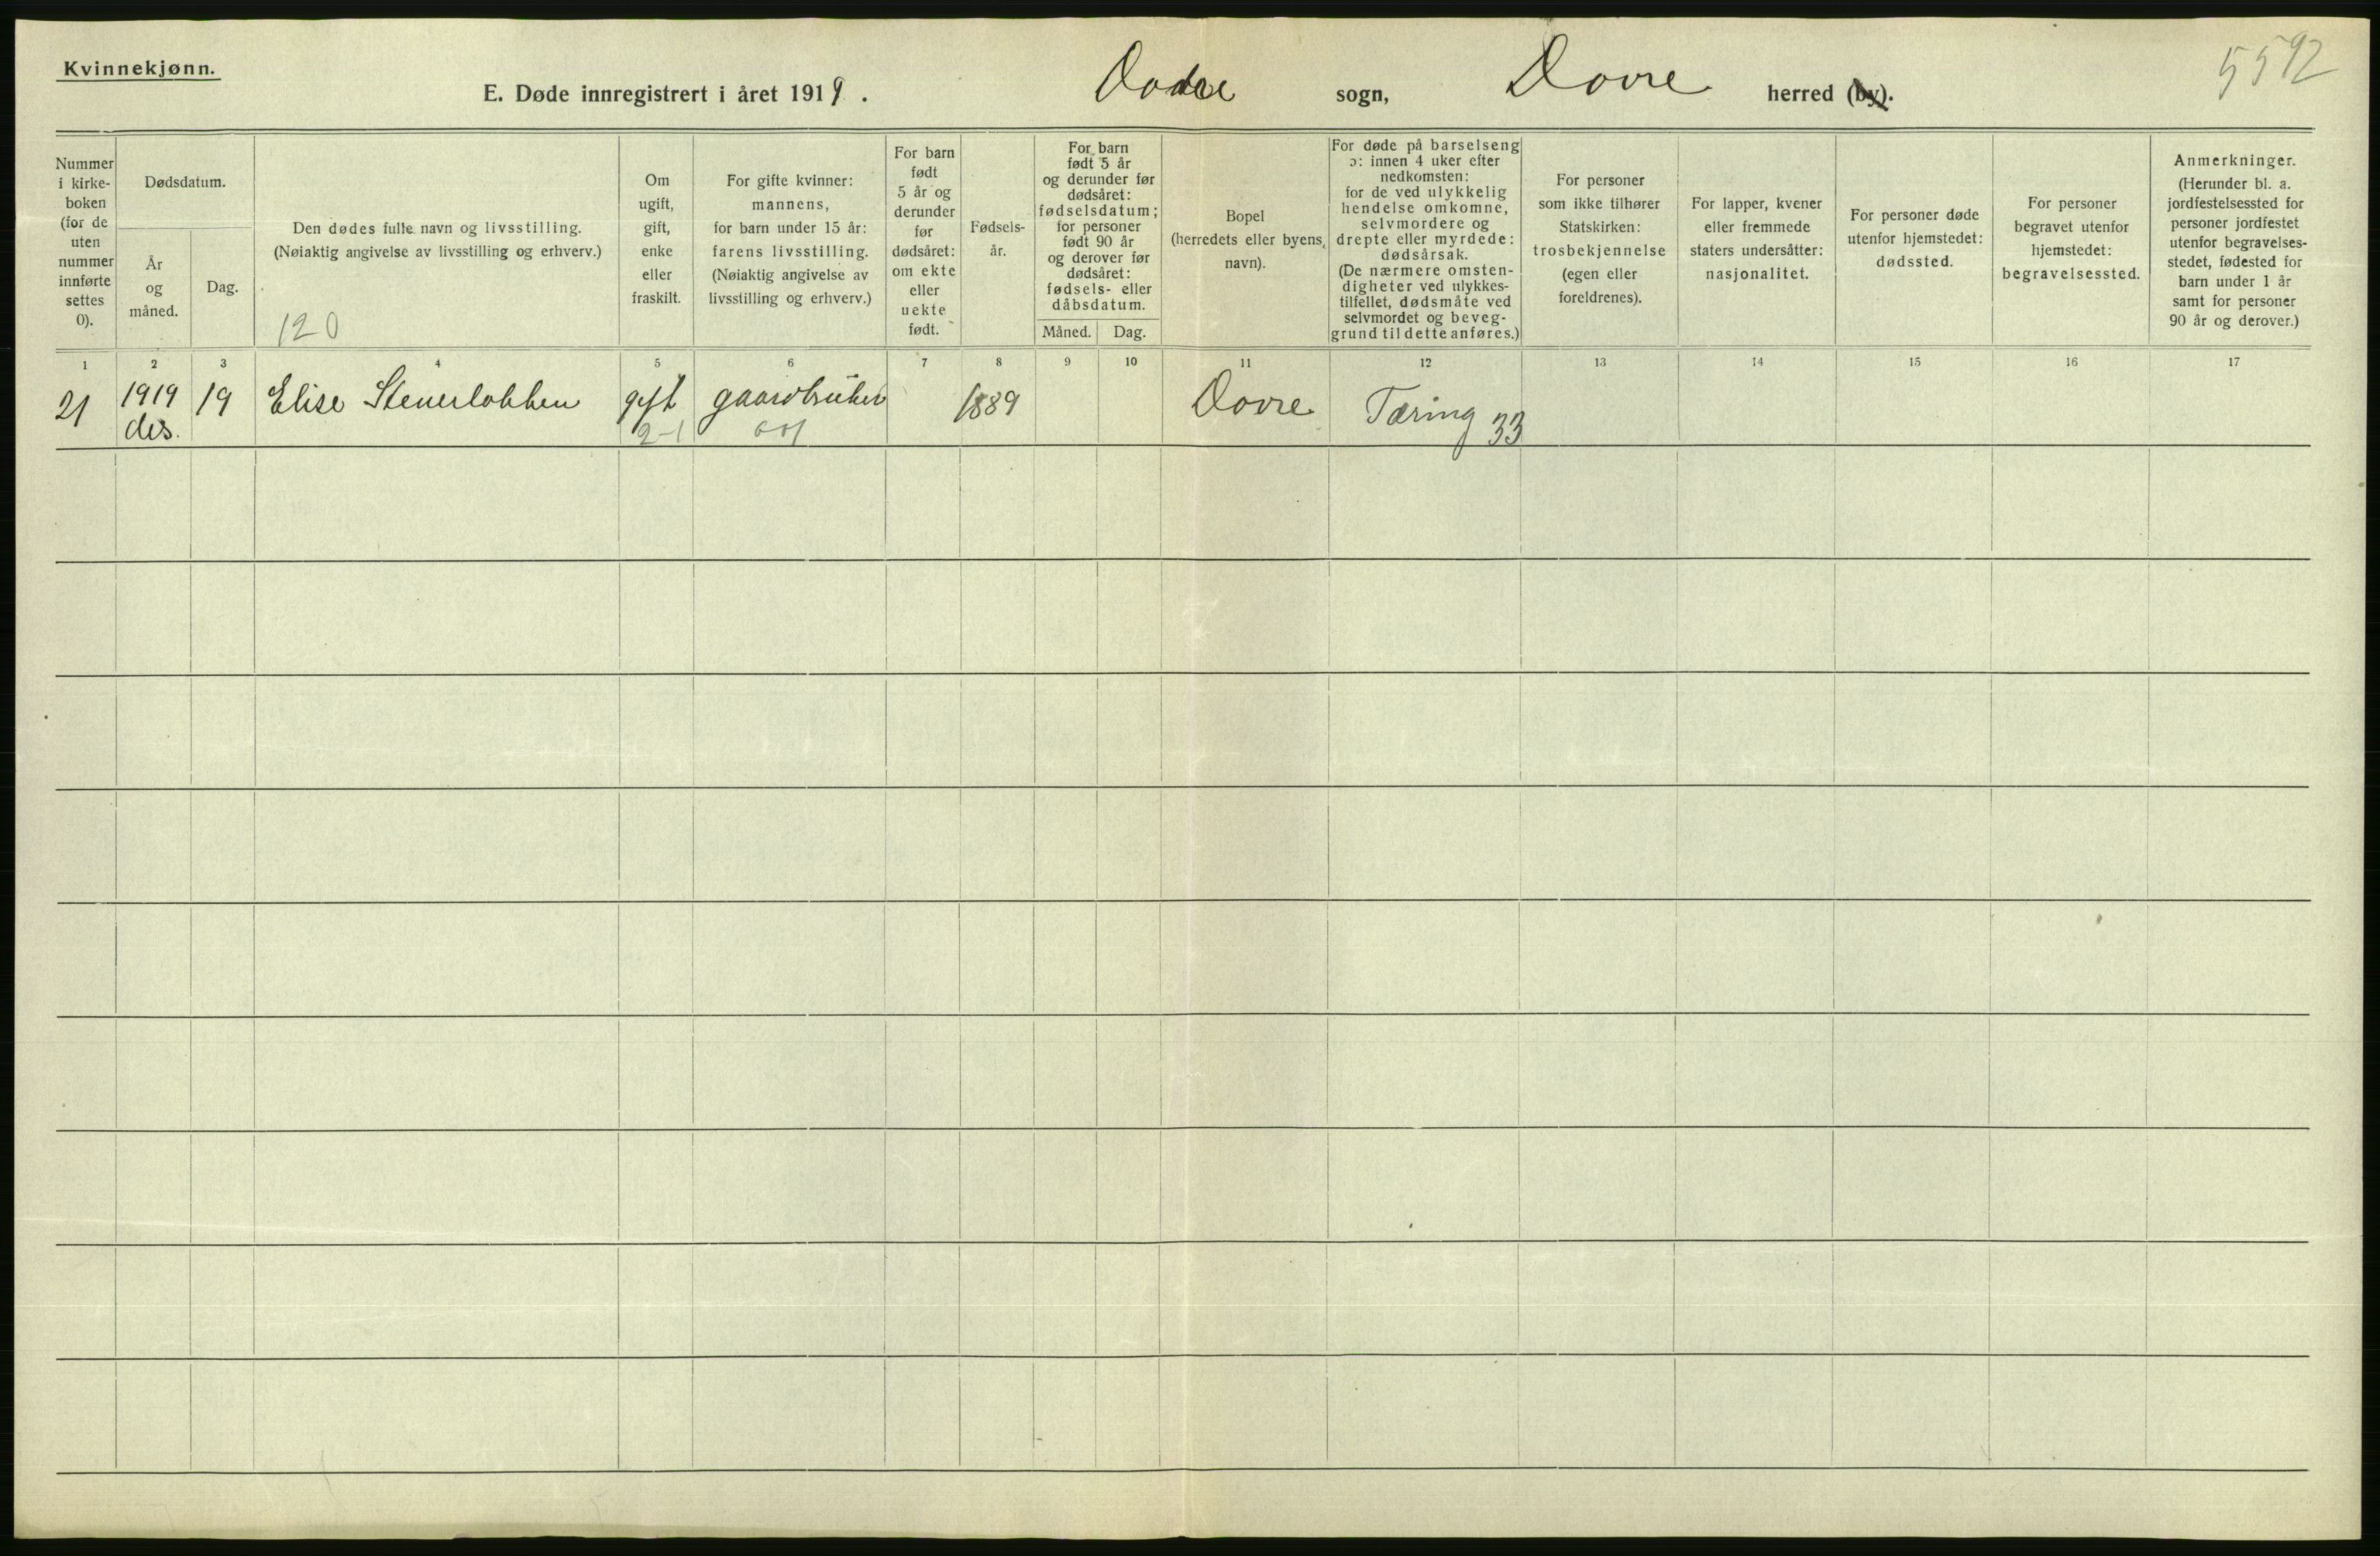 Kvinnekjønn.
5592
E. Døde innregistrert i året 1919. Dovre sogn, Dovre herred (by).
Nummer i kirke- boken (for de uten nummer innførte settes 0).
Dødsdatum.
År og måned.
Dag.
Den dødes fulle navn og livsstilling.
(Nøiaktig angivelse av livsstilling og erhverv.)
120
Om ugift, gift, enke eller fraskilt.
For gifte kvinner: mannens, for barn under 15 år: farens livsstilling. (Nøiaktig angivelse av livsstilling og erhverv.)
For barn født 5 år og derunder før dødsåret: om ekte eller uekte født.
Fødsels- år.
For barn født 5 år og derunder før dødsåret: fødselsdatum; for personer født 90 år og derover før dødsåret: fødsels- eller dåbsdatum.
Måned. Dag.
Bopel (herredets eller byens navn).
For døde på barselseng ɔ: innen 4 uker efter nedkomsten: for de ved ulykkelig hendelse omkomne, selvmordere og drepte eller myrdede: dødsårsak. (De nærmere omsten- digheter ved ulykkes- tilfellet, dødsmåte ved selvmordet og beveg- grund til dette anføres.)
For personer som ikke tilhører Statskirken: trosbekjennelse (egen eller foreldrenes).
For lapper, kvener eller fremmede staters undersåtter: nasjonalitet.
For personer døde utenfor hjemstedet: dødssted.
For personer begravet utenfor hjemstedet: begravelsessted.
Anmerkninger. (Herunder bl. a. jordfestelsessted for personer jordfestet utenfor begravelses- stedet, fødested for barn under 1 år samt for personer 90 år og derover.)
1 2 3 4 5 6 7 8 9 10 11 12 13 14 15 16 17
21 1919 19 Elise gift gaardbruker 1889 Dovre Tæring 33
des. 2-1